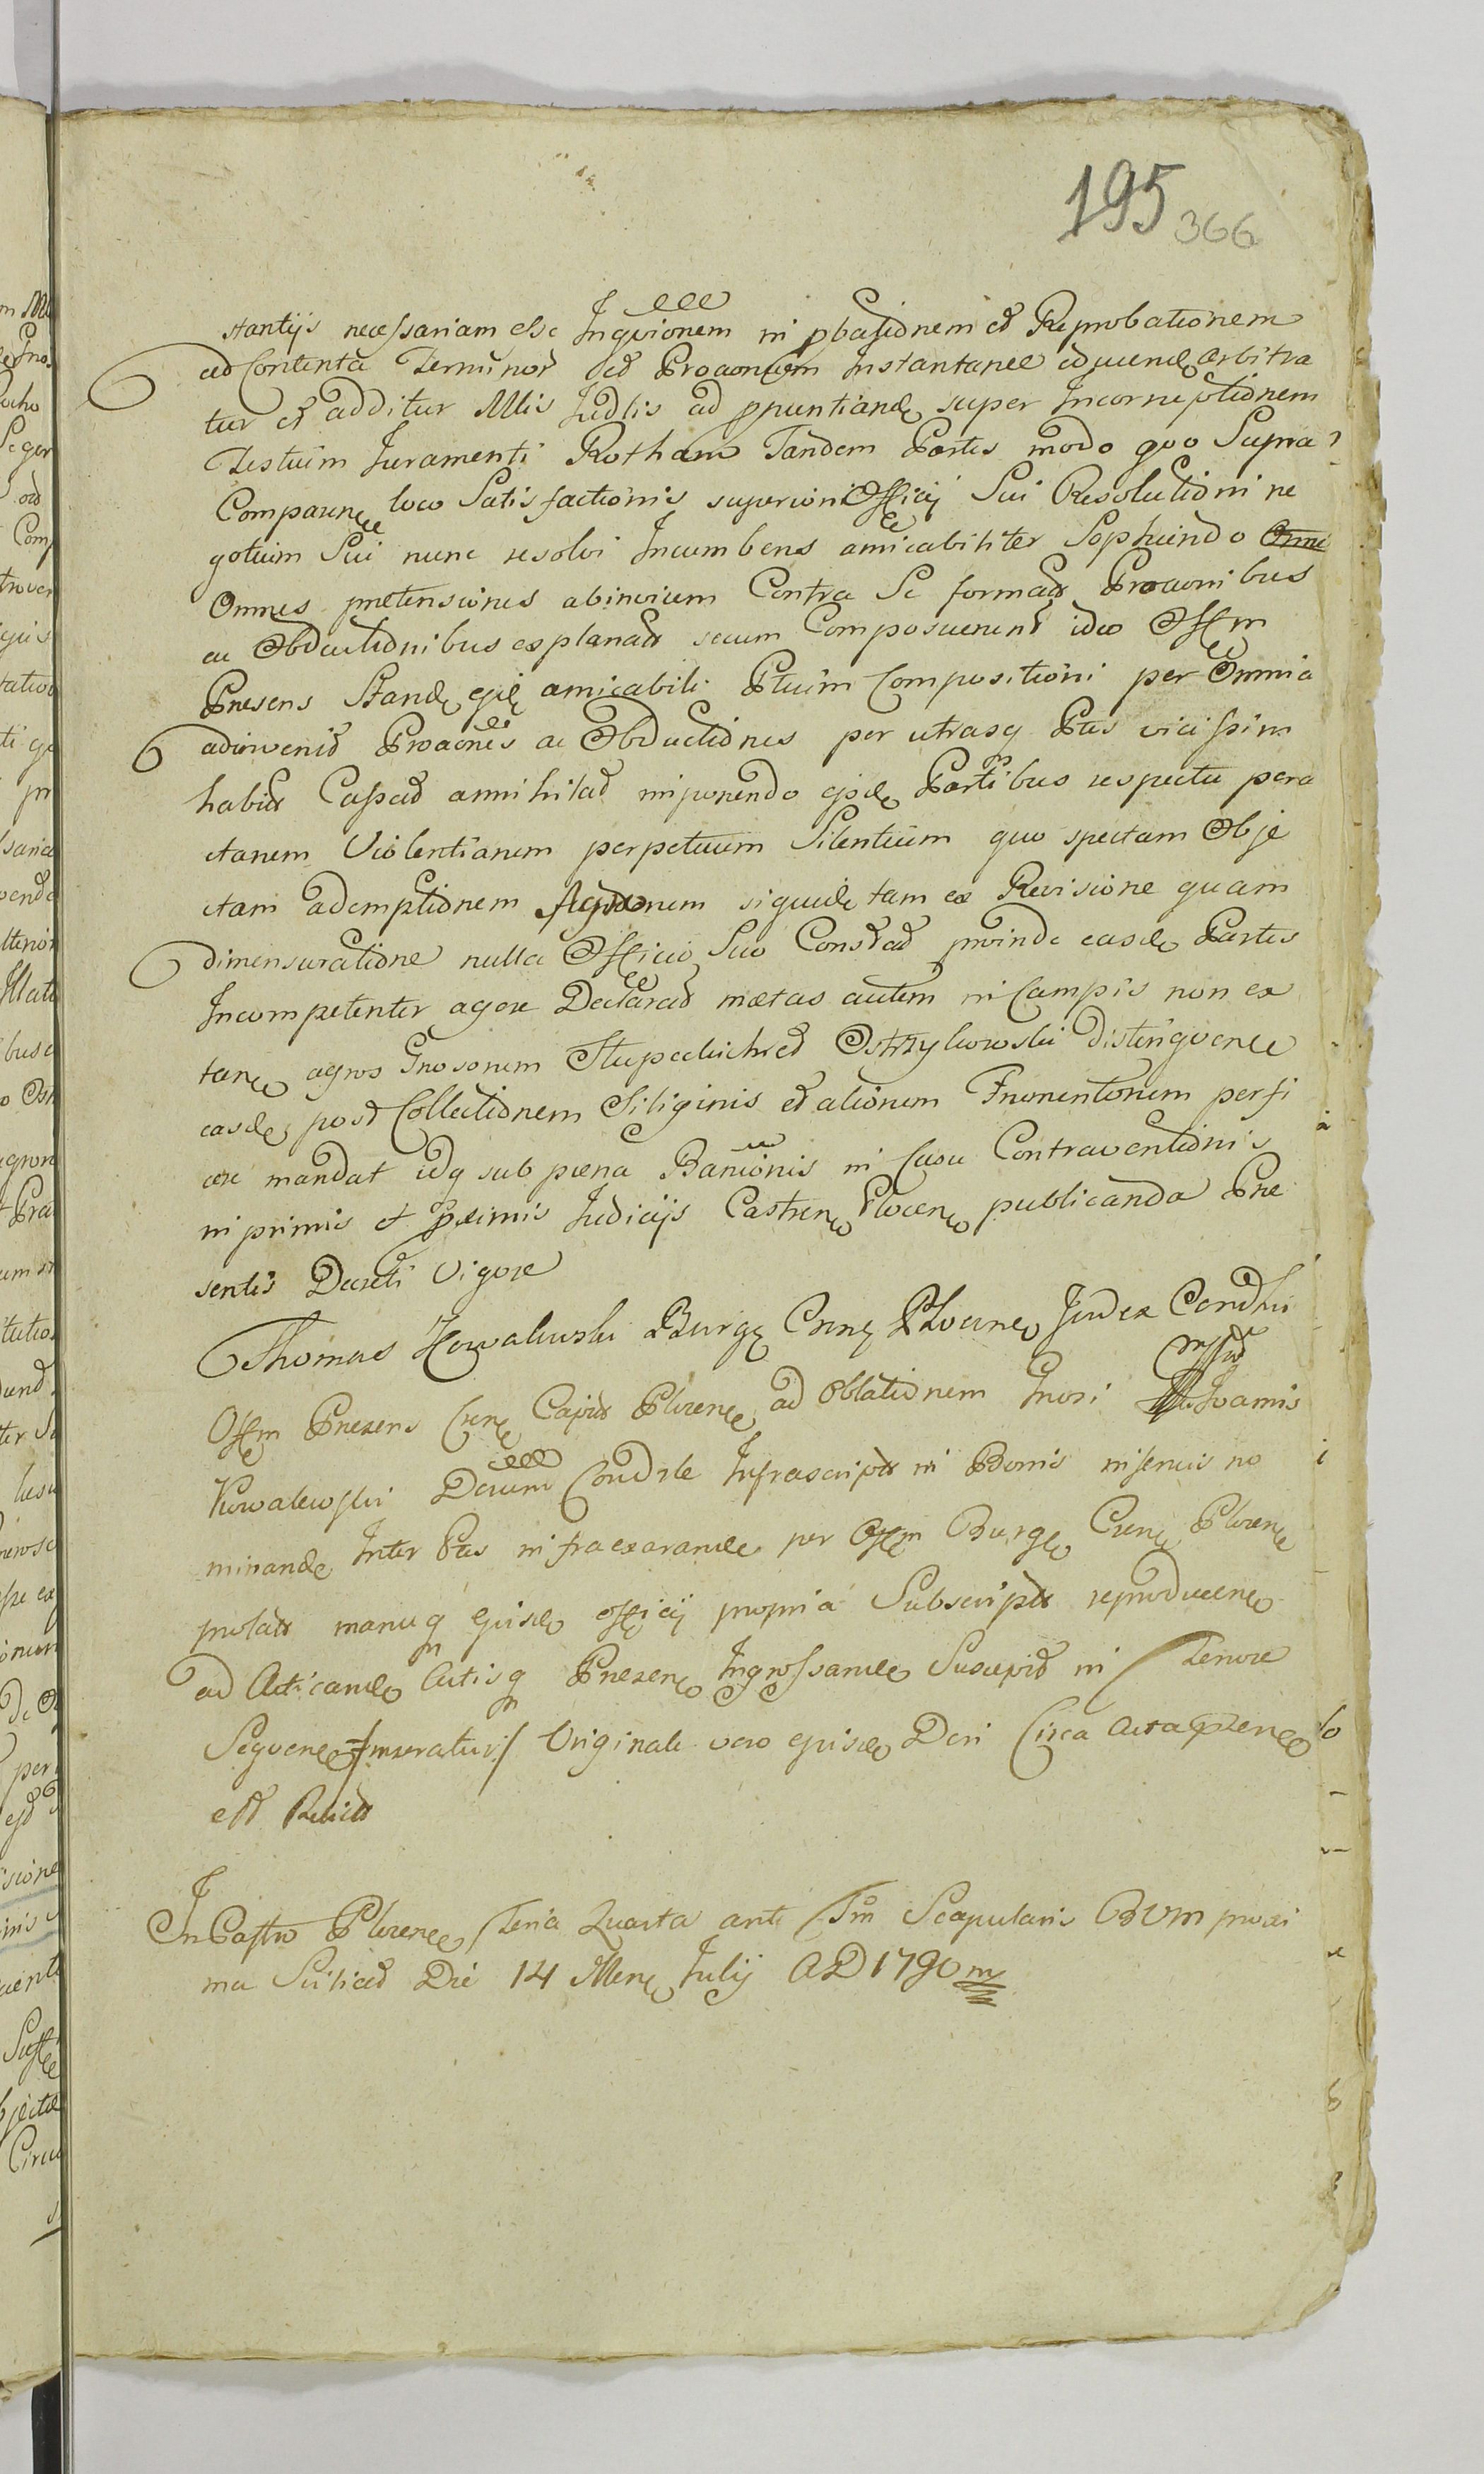 195 366
stantijs necessariam esse Inqvionem in pbationem et Reprobationem
ad Contenta Terminor ad Proaonem Instantanee educend arbitra
tur et additur Mlis Judlis ad pnuntiand super Incorruptionem
Testium Juramenti Rotham Tandem Partes modo quo Supra
Comparen loco Satisfactionis superioris Officij Sui Resolutioni ne
gotium Sui nunc resolvi Incumbens amicabiliter Sophiendo
Omnes pretensiones abinvicem Contra Se format Proaonibus
ac Obductionibus explanat secum Composuerunt ideo Offm
Presens Stand ejsd amicabili Ptium Compositioni per Omnia
adinvenit Proaones ac Obductiones per utrasq Ptes vicissim
habit Cassat annihilat imponendo ejsd Partibus respectu pera
ctarum Violentiarum perpetuum Silentium quo spectam Obje
ctam ademptionem Agrorum siquid tam ex Revisione quam
dimensuratione nulla Officio Suo Constat proinde easd Partes
Incompetenter agere Declarat metas autem in Campis non ex
tan agros Gnosorum Slupeckich et Ostrzykowski distingvene
easd post Collectionem Siliginis et aliorum Frumentorum perfi
cere mandat idq sub pæna Banionis in Casu Contraventionis
in primis et primis Judicijs Castren Plocen publicanda Pre
sentis Decreti Vigore
Thomas Kowalewski Burg Crne Plocen Judex Condlis
Offm Presens Crene Capit Plocen ad Oblationem Gnosi Joannis
Kowalewski Decrum Condle Infrascript in Bonis inferius no
minand Inter Ptes infraexarand per Offm Burg Crene Plocen
prolat manuq Ejusd officij propria Subscript reproducen
ad Acticand Actisq Presen Ingrossand Suscepit in Tenore
Seqvene /Inseratur/ Originale vero ejusd Dcri Circa acta pzen
est Relict
In Castro Plocen Feria Quarta ante Ftm Scapularis BVM proxi
ma Scilicet Die 14 Men Julij AD 1790 m